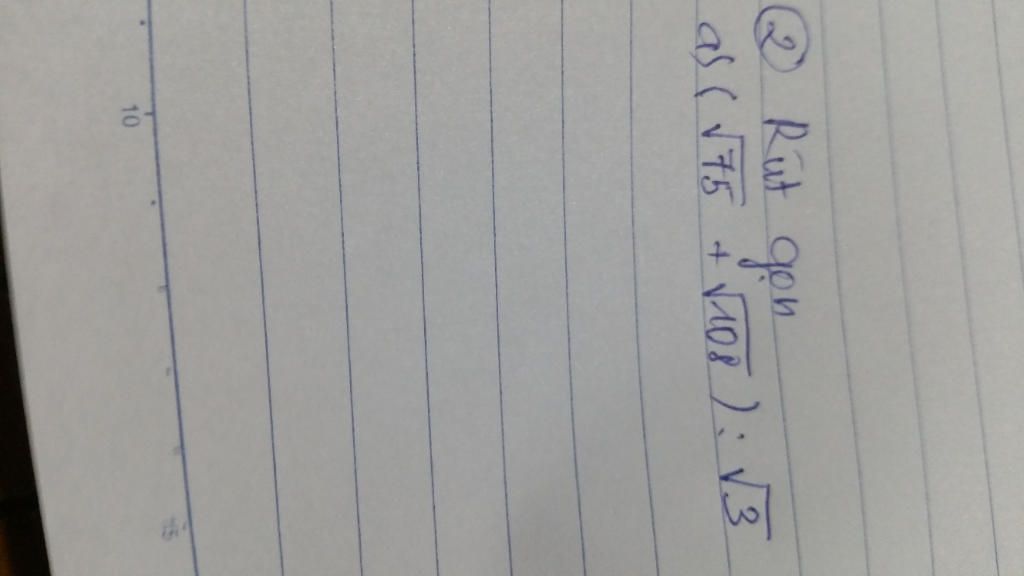 ② Rút gọn
a) (√75 + √108) : √3
10
15